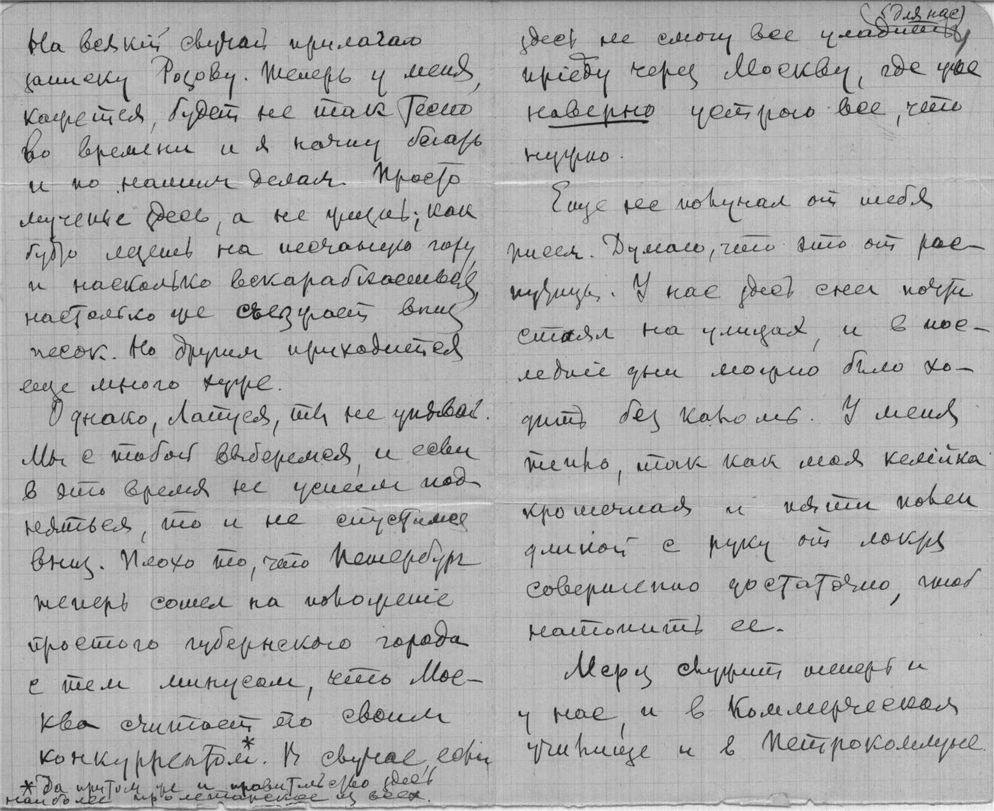 На всякий случай прилагаю
записку Розову. Теперь у меня,
кажется, будет не так тесно
во времени и я начну бегать
и по нашим делам. Просто
мученье здесь, а не жизнь; как
будто лезешь на песчаную гору,
и насколько вскарабкаешься,
настолько же съезжает вниз
песок. Но другим приходится
еще много хуже.
Однако, Лапуся, ты не унывай.
Мы с тобой выберемся, и если
в это время не успеем под-
няться, то и не спустимся
вниз. Плохо то, что Петербург
теперь сошел на положение
простого губернского города
с тем минусом, что Мос-
ква считает его своим
конкуррентом*. В случае, если
* Да притом же и правительство здесь
наиболее пролетарское из всех.
(для нас)
здесь не смогу все уладить,
приеду через Москву, где уже
наверно устрою все, что
нужно.
Еще не получал от тебя
писем. Думаю, что это от рас-
путицы. У нас здесь снег почти
стаял на улицах, и в пос-
ледние дни можно было хо-
дить без калош. У меня
тепло, так как моя келейка
крошечная и пяти полен
длиной с руку от локтя
совершенно достаточно, чтоб
натопить ее.
Мерц служит теперь и
у нас, и в Коммерческом
училище и в Петрокоммуне.